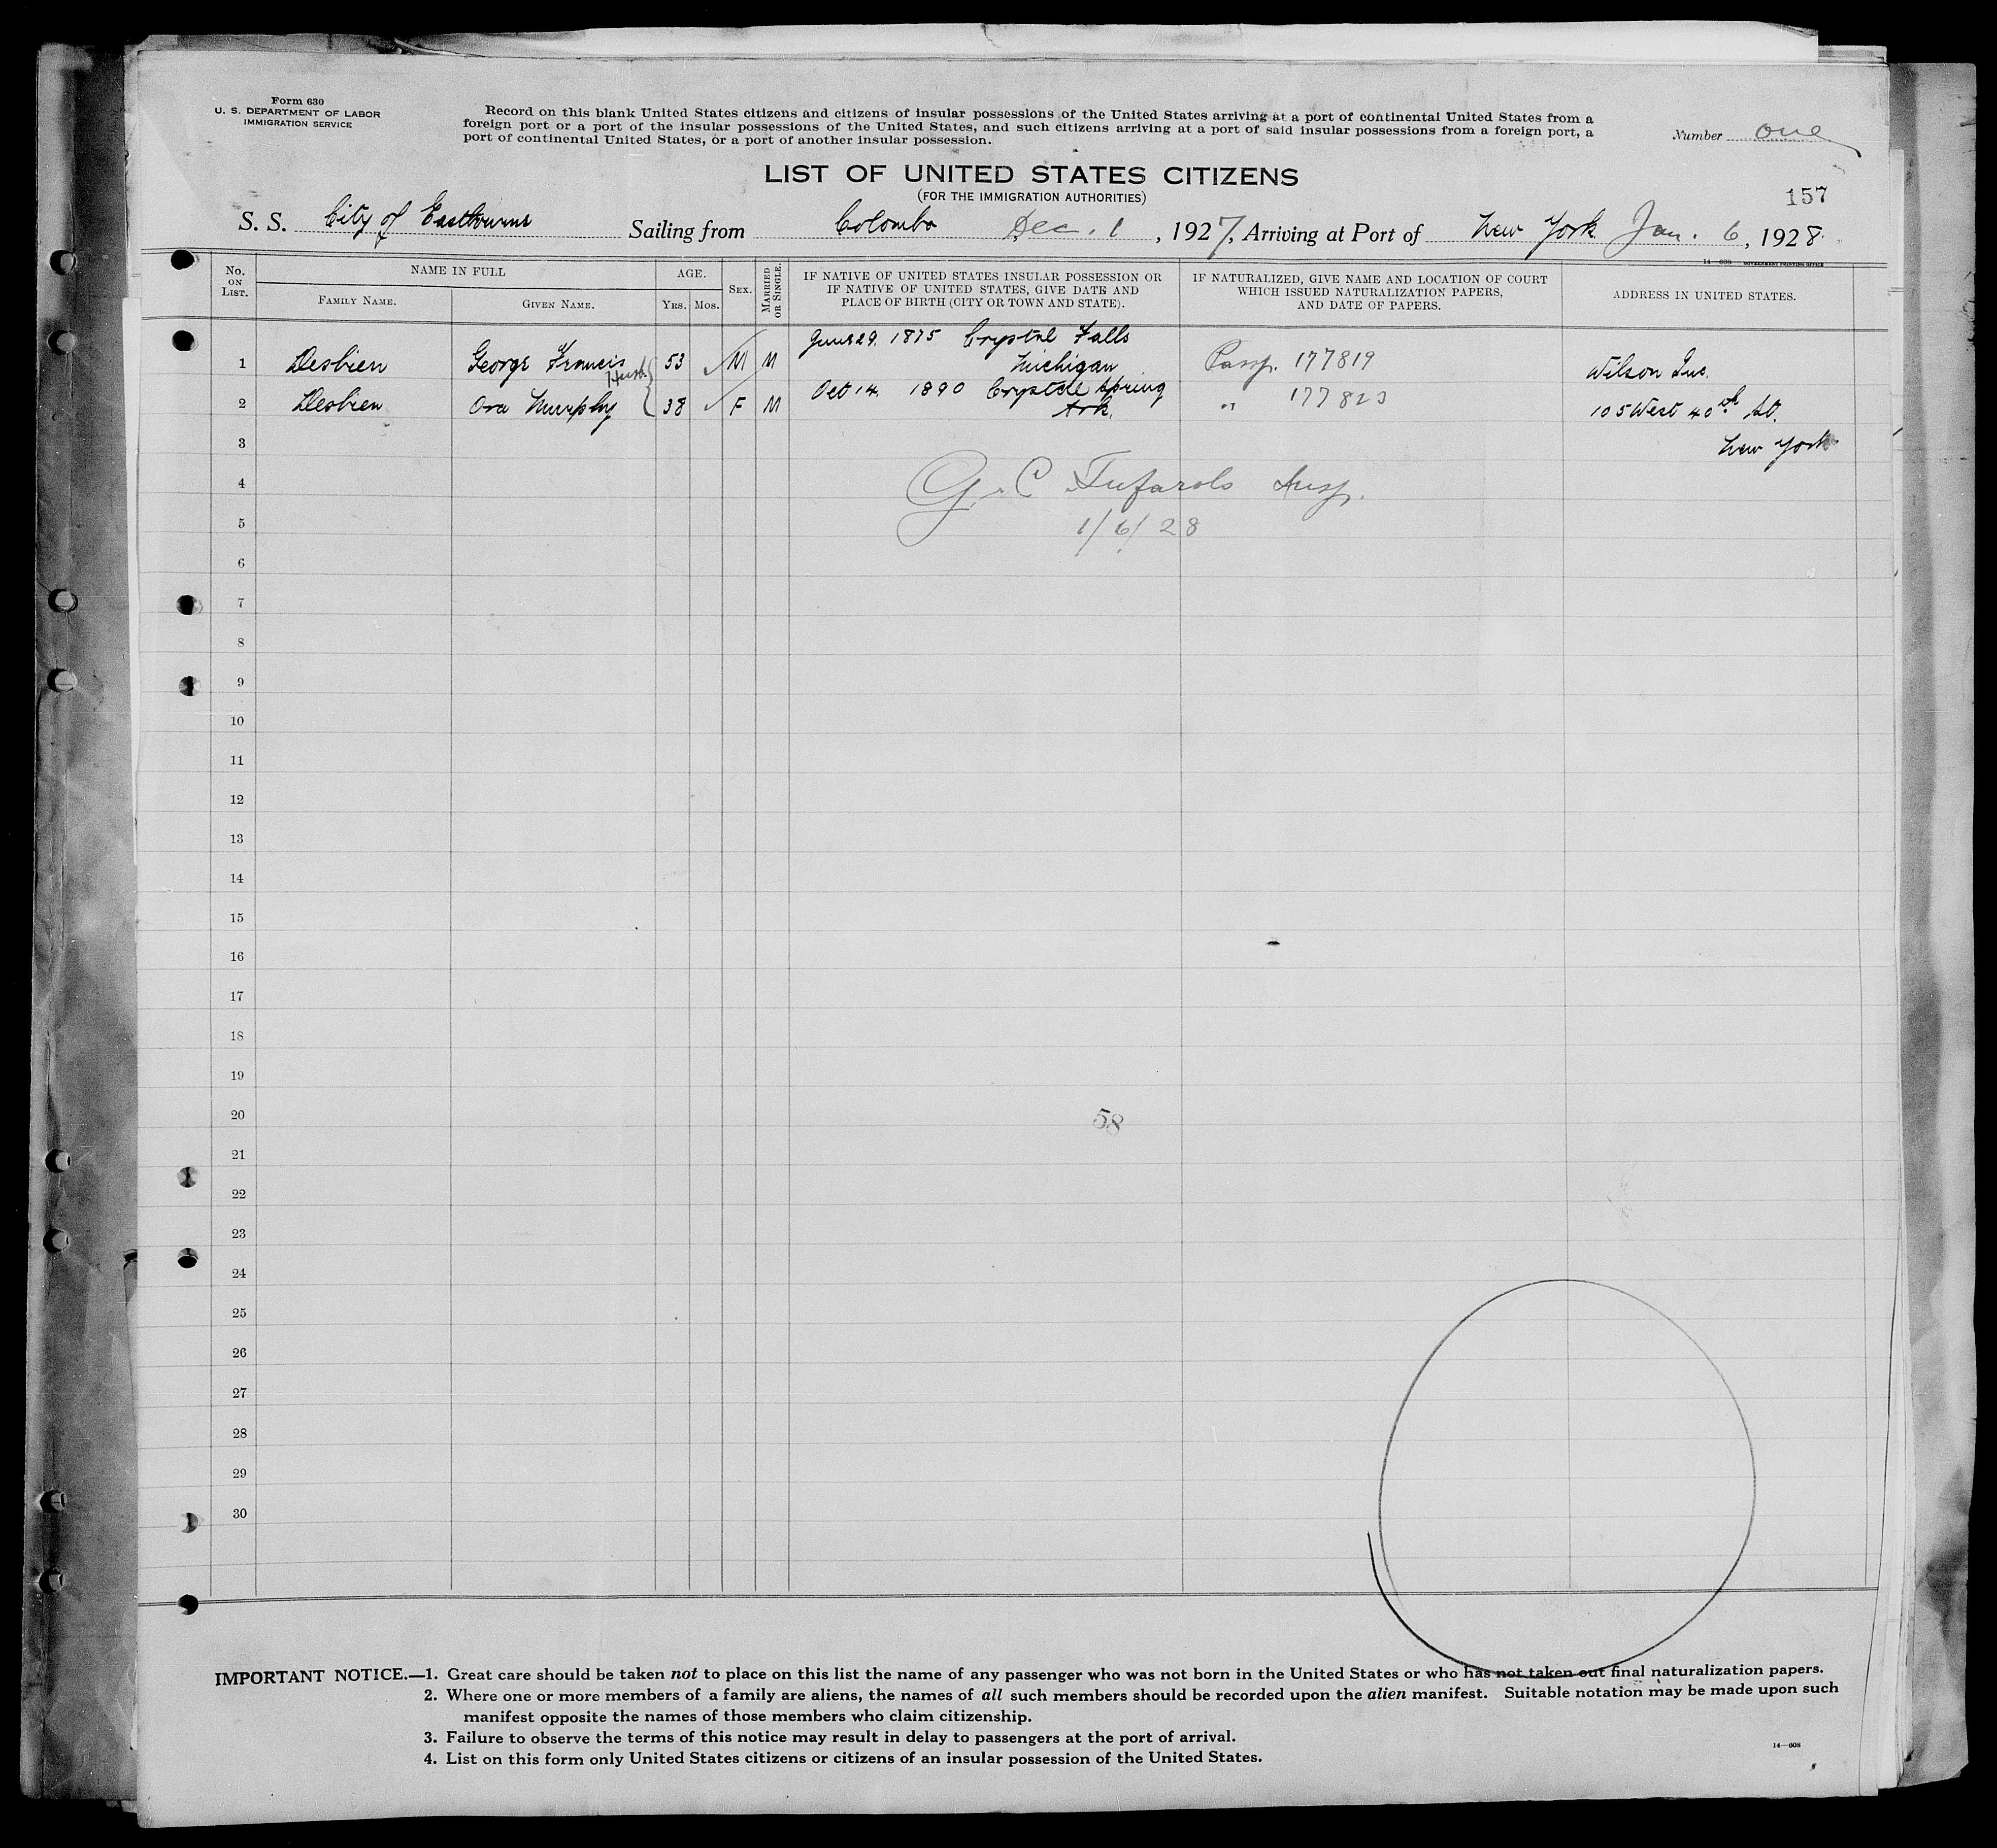 Form 630
U. S. DEPARTMENT OF LABOR
IMMIGRATION SERVICE
Record on this blank United States citizens and citizens of insular possessions of the United States arriving at a port of continental United States from a
foreign port or a port of the insular possessions of the United States, and such citizens arriving at a port of said insular possessions from a foreign port, a
port of continental United States, or a port of another insular possession.
Number one
LIST OF UNITED STATES CITIZENS
(FOR THE IMMIGRATION AUTHORITIES)
157
S. S. City of Eastbourne Sailing from Colombo Dec. 1, 1927, Arriving at Port of New York Jan. 6, 1928.
14—608 GOVERNMENT PRINTING OFFICE
No. ON LIST. NAME IN FULL FAMILY NAME. GIVEN NAME. AGE. YRS. MOS. SEX. MARRIED OR SINGLE. IF NATIVE OF UNITED STATES INSULAR POSSESSION OR IF NATIVE OF UNITED STATES, GIVE DATE AND PLACE OF BIRTH (CITY OR TOWN AND STATE). IF NATURALIZED, GIVE NAME AND LOCATION OF COURT WHICH ISSUED NATURALIZATION PAPERS, AND DATE OF PAPERS. ADDRESS IN UNITED STATES.
1 Desbien George Francis 53 M M June 29. 1875 Crystal Falls Michigan Passp. 177819 Wilson Inc.
Husb.
2 Desbien Ora Murphy 38 F M Oct 14. 1890 Crystal Spring Ark. " 177823 105 West 40th St.
3 New York
4 G. C. Insp.
5 1/6/28
6
7
8
9
10
11
12
13
14
15
16
17
18
19
20 58
21
22
23
24
25
26
27
28
29
30
IMPORTANT NOTICE.—1. Great care should be taken not to place on this list the name of any passenger who was not born in the United States or who has not taken out final naturalization papers.
2. Where one or more members of a family are aliens, the names of all such members should be recorded upon the alien manifest. Suitable notation may be made upon such
manifest opposite the names of those members who claim citizenship.
3. Failure to observe the terms of this notice may result in delay to passengers at the port of arrival.
4. List on this form only United States citizens or citizens of an insular possession of the United States.
14—608